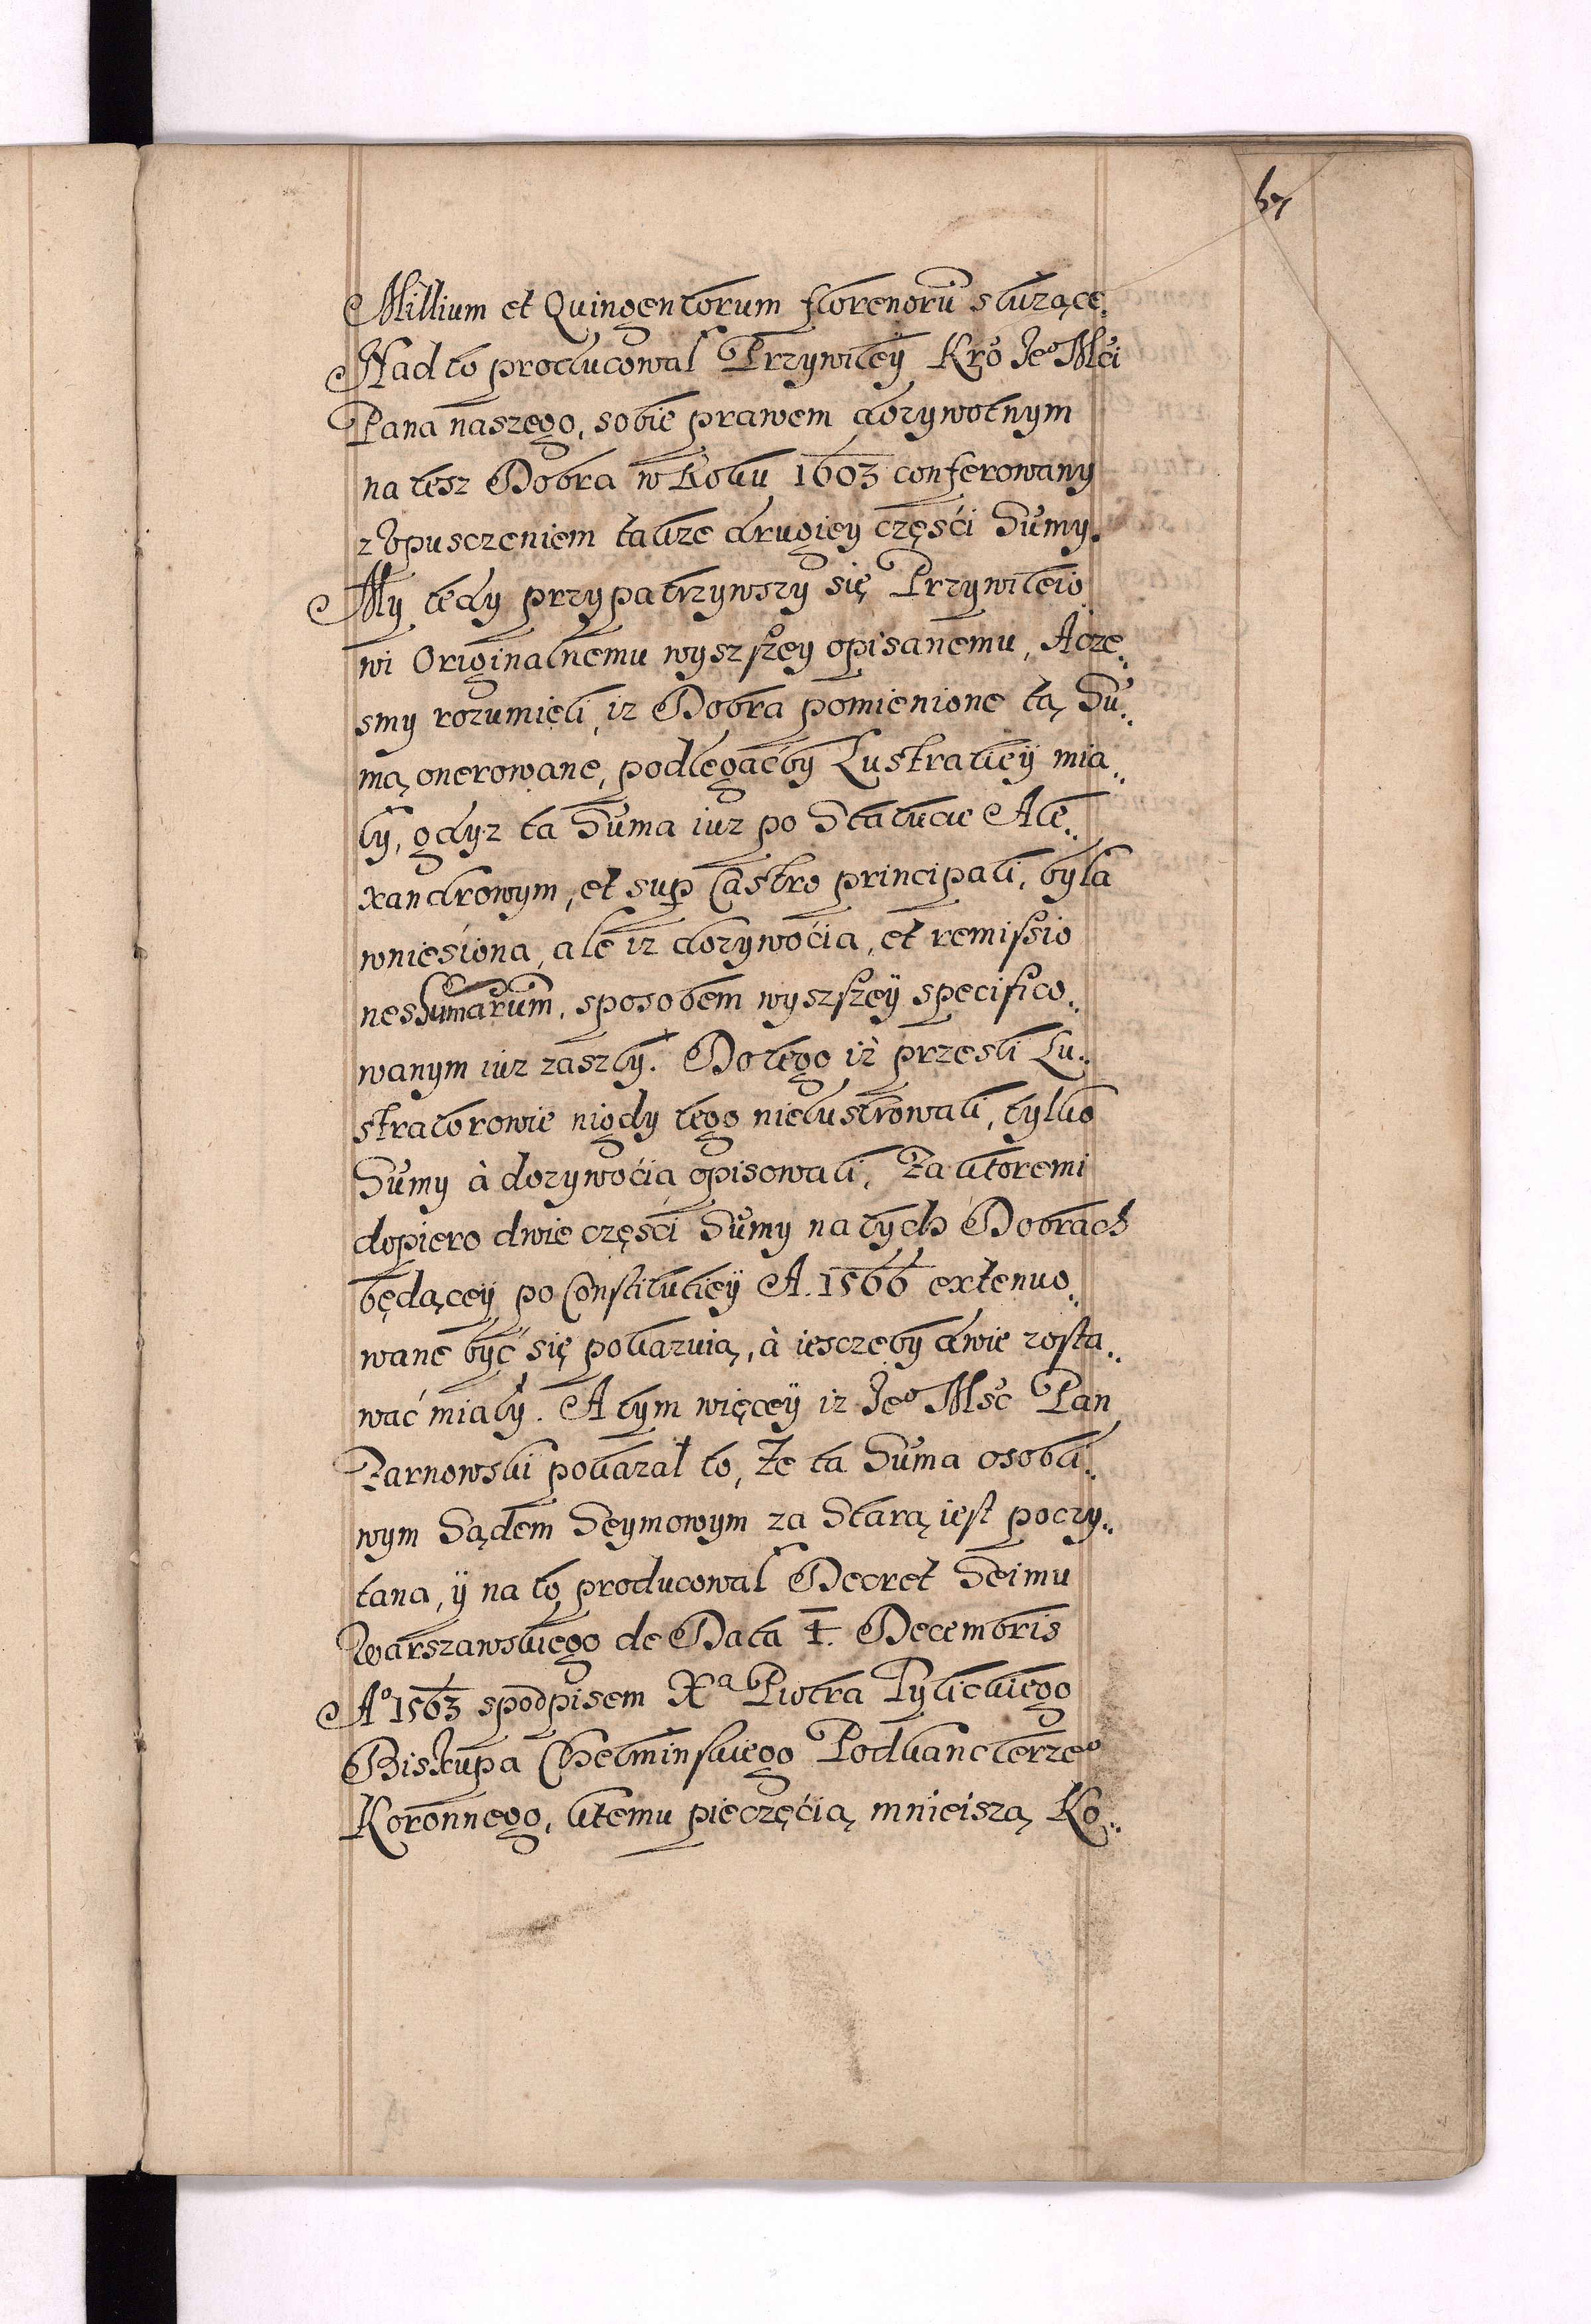 67
Millium et Quingentorum florenorū słuzące.
Nad to producowal Przywiley Kro Jeo Mći
Pana naszego, sobie prawem dozywotnym
na tesz Dobra w Roku 1603 conferowany
z opusczeniem takze drugiey częśći Sumy.
My tedy przypatrzywszy się Przywileio
wi Originalnemu wyszszey opisanemu, Acze„
smy rozumieli, iz Dobra pomienione tą Su„
mą onerowane, podlegaćby Lustratiey mia„
ly, gdyz ta Suma iuz po Statucie Ale„
xandrowym, et sup Castro principali, byla
wniesiona, ale iz dozywoćia, et remissio
nes sumarum, sposobem wyszszey specifico„
wanym iuz zaszly. Do tego iz przesli Lu„
stratorowie nigdy tego nielustrowali, tylko
Sumy à dozywoćia opisowali, Za ktoremi
dopiero dwie częśći Sumy na tych Dobrach
będącey po Constitutiey A. 1566 extenuo„
wane być się pokazuią, à iesczeby dwie zosta„
wać mialy. A tym więcey iz Jeo Mść Pan
Zarnowski pokazal to, Ze ta Suma osobli„
wym Sądem Seymowym za Starą iest poczy„
tana, ÿ na to producowal Decret Seimu
Warszawskiego de Data 4. Decembris
Ao 1563 spodpisem Xa Piotra Tylickiego
Biskupa Chelminskiego Podkanclerzeo
Koronnego, ktemu pieczęćią mnieiszą Ko„